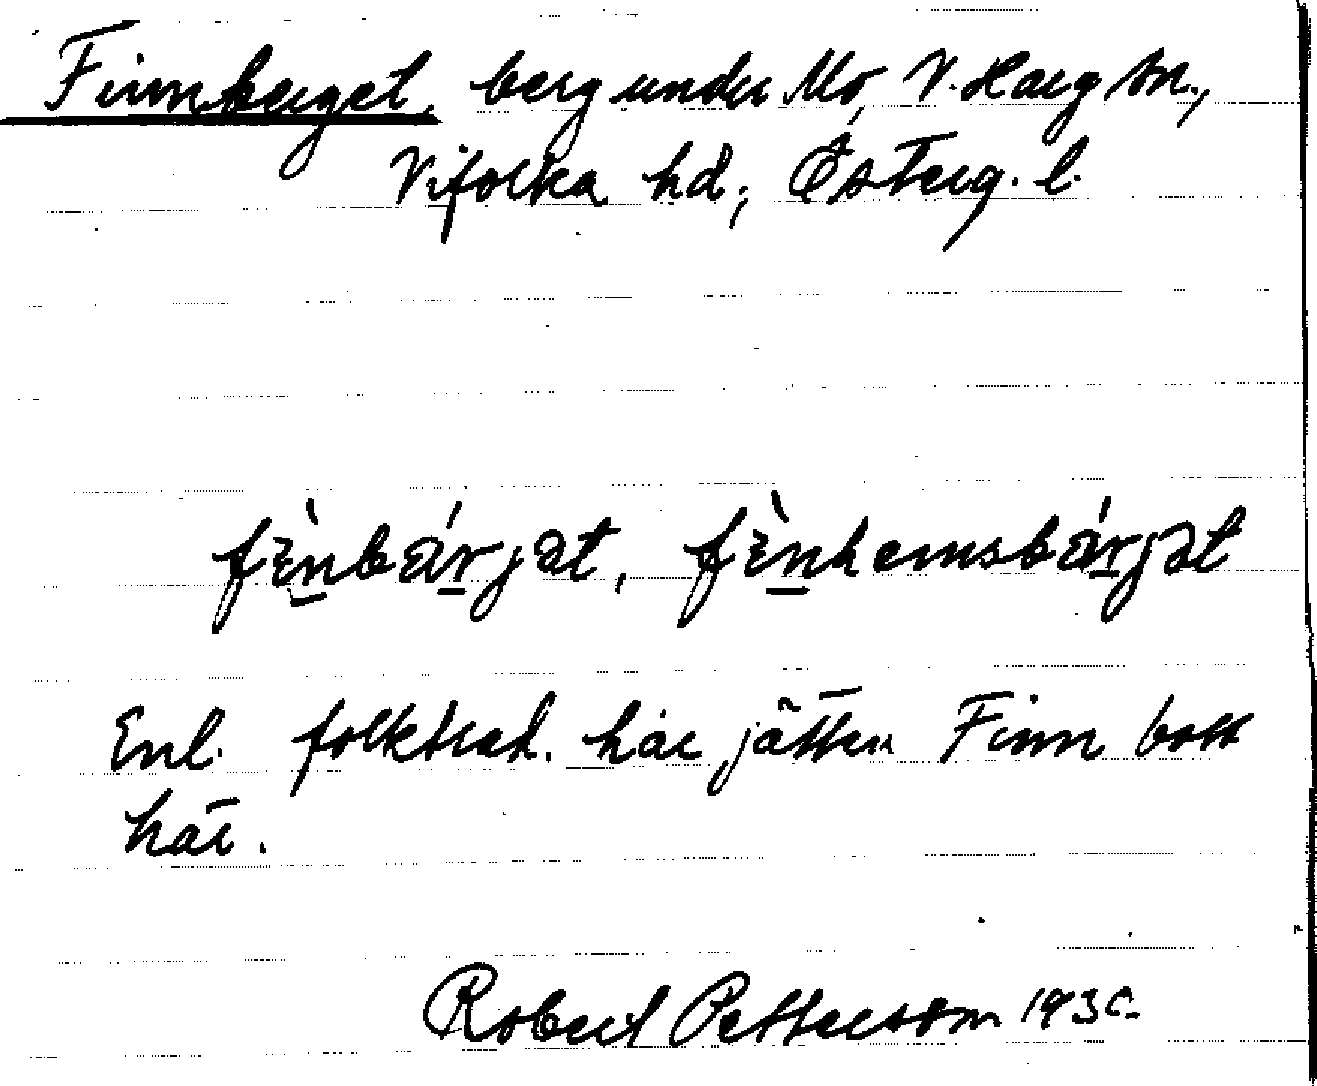 Finnberget, berg under Mo, V. Harg sn.,
Vifolka hd, Österg. l.
fɪ̀n̲bä́r̲jət, fɪ̀n̲hemsbä́r̲jət
Enl. folktrad. har jätten Finn bott
här.
Robert Petterson